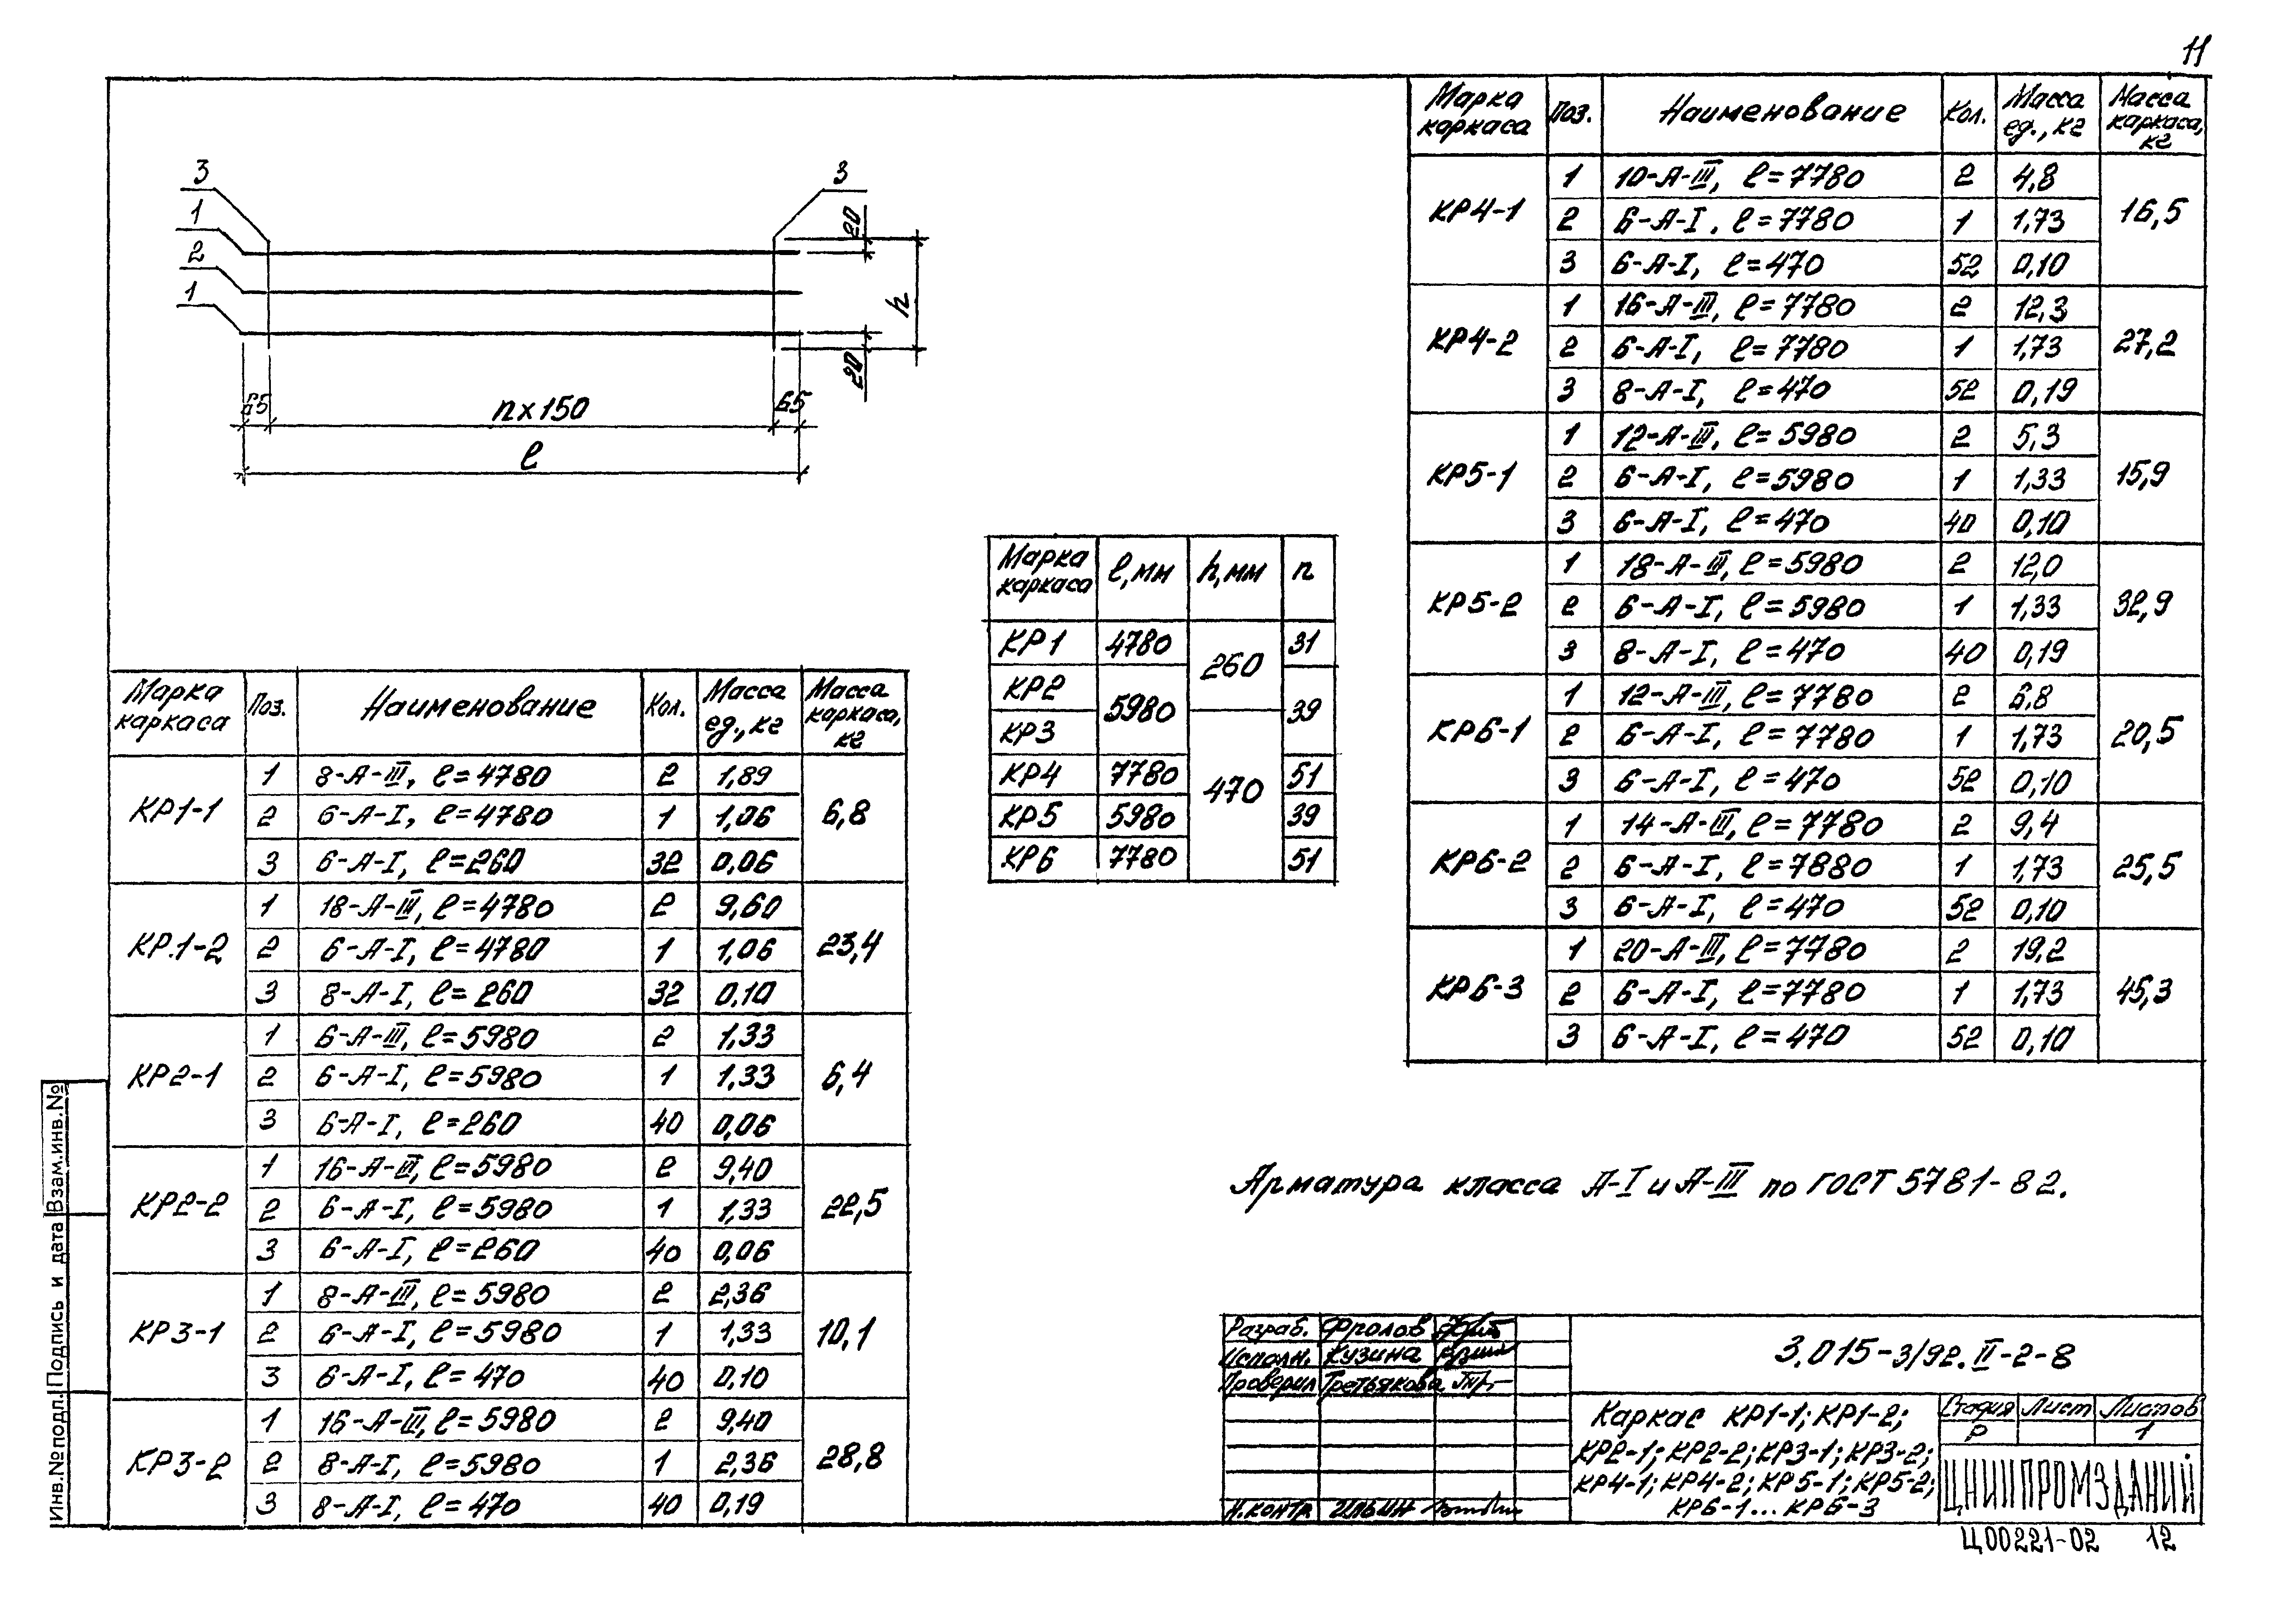 11
3
1
2
1
3
20
h
20
65
n×150
65
ℓ
Марка каркаса | Поз. | Наименование | Кол. | Масса ед., кг | Масса каркаса, кг
КР1-1 | 1 | 8-А-III, ℓ=4780 | 2 | 1,89 | 6,8
2 | 6-А-I, ℓ=4780 | 1 | 1,06
3 | 6-А-I, ℓ=260 | 32 | 0,06
КР.1-2 | 1 | 18-А-III, ℓ=4780 | 2 | 9,60 | 23,4
2 | 6-А-I, ℓ=4780 | 1 | 1,06
3 | 8-А-I, ℓ=260 | 32 | 0,10
КР2-1 | 1 | 6-А-III, ℓ=5980 | 2 | 1,33 | 6,4
2 | 6-А-I, ℓ=5980 | 1 | 1,33
3 | 6-А-I, ℓ=260 | 40 | 0,06
КР2-2 | 1 | 16-А-III, ℓ=5980 | 2 | 9,40 | 22,5
2 | 6-А-I, ℓ=5980 | 1 | 1,33
3 | 6-А-I, ℓ=260 | 40 | 0,06
КР3-1 | 1 | 8-А-III, ℓ=5980 | 2 | 2,36 | 10,1
2 | 6-А-I, ℓ=5980 | 1 | 1,33
3 | 6-А-I, ℓ=470 | 40 | 0,10
КР3-2 | 1 | 16-А-III, ℓ=5980 | 2 | 9,40 | 28,8
2 | 8-А-I, ℓ=5980 | 1 | 2,36
3 | 8-А-I, ℓ=470 | 40 | 0,19
Марка каркаса | ℓ, мм | h, мм | n
КР1 | 4780 | 260 | 31
КР2 | 5980 | 39
КР3 | 470
КР4 | 7780 | 51
КР5 | 5980 | 39
КР6 | 7780 | 51
Марка каркаса | Поз. | Наименование | Кол. | Масса ед., кг | Масса каркаса, кг
КР4-1 | 1 | 10-А-III, ℓ=7780 | 2 | 4,8 | 16,5
2 | 6-А-I, ℓ=7780 | 1 | 1,73
3 | 6-А-I, ℓ=470 | 52 | 0,10
КР4-2 | 1 | 16-А-III, ℓ=7780 | 2 | 12,3 | 27,2
2 | 6-А-I, ℓ=7780 | 1 | 1,73
3 | 8-А-I, ℓ=470 | 52 | 0,19
КР5-1 | 1 | 12-А-III, ℓ=5980 | 2 | 5,3 | 15,9
2 | 6-А-I, ℓ=5980 | 1 | 1,33
3 | 6-А-I, ℓ=470 | 40 | 0,10
КР5-2 | 1 | 18-А-III, ℓ=5980 | 2 | 12,0 | 32,9
2 | 6-А-I, ℓ=5980 | 1 | 1,33
3 | 8-А-I, ℓ=470 | 40 | 0,19
КР6-1 | 1 | 12-А-III, ℓ=7780 | 2 | 6,8 | 20,5
2 | 6-А-I, ℓ=7780 | 1 | 1,73
3 | 6-А-I, ℓ=470 | 52 | 0,10
КР6-2 | 1 | 14-А-III, ℓ=7780 | 2 | 9,4 | 25,5
2 | 6-А-I, ℓ=7880 | 1 | 1,73
3 | 6-А-I, ℓ=470 | 52 | 0,10
КР6-3 | 1 | 20-А-III, ℓ=7780 | 2 | 19,2 | 45,3
2 | 6-А-I, ℓ=7780 | 1 | 1,73
3 | 6-А-I, ℓ=470 | 52 | 0,10
Арматура класса А-I и А-III по ГОСТ 5781-82.
Разраб. Фролов
Исполн. Кузина
Проверил Третьякова
Н.контр Ильин
3.015-3/92.II-2-8
Каркас КР1-1; КР1-2;
КР2-1; КР2-2; КР3-1; КР3-2;
КР4-1; КР4-2; КР5-1; КР5-2;
КР6-1...КР6-3
Стадия Лист Листов
Р 1
ЦНИИПРОМЗДАНИЙ
Ц00221-02 12
Инв.№подл. Подпись и дата Взам.инв.№